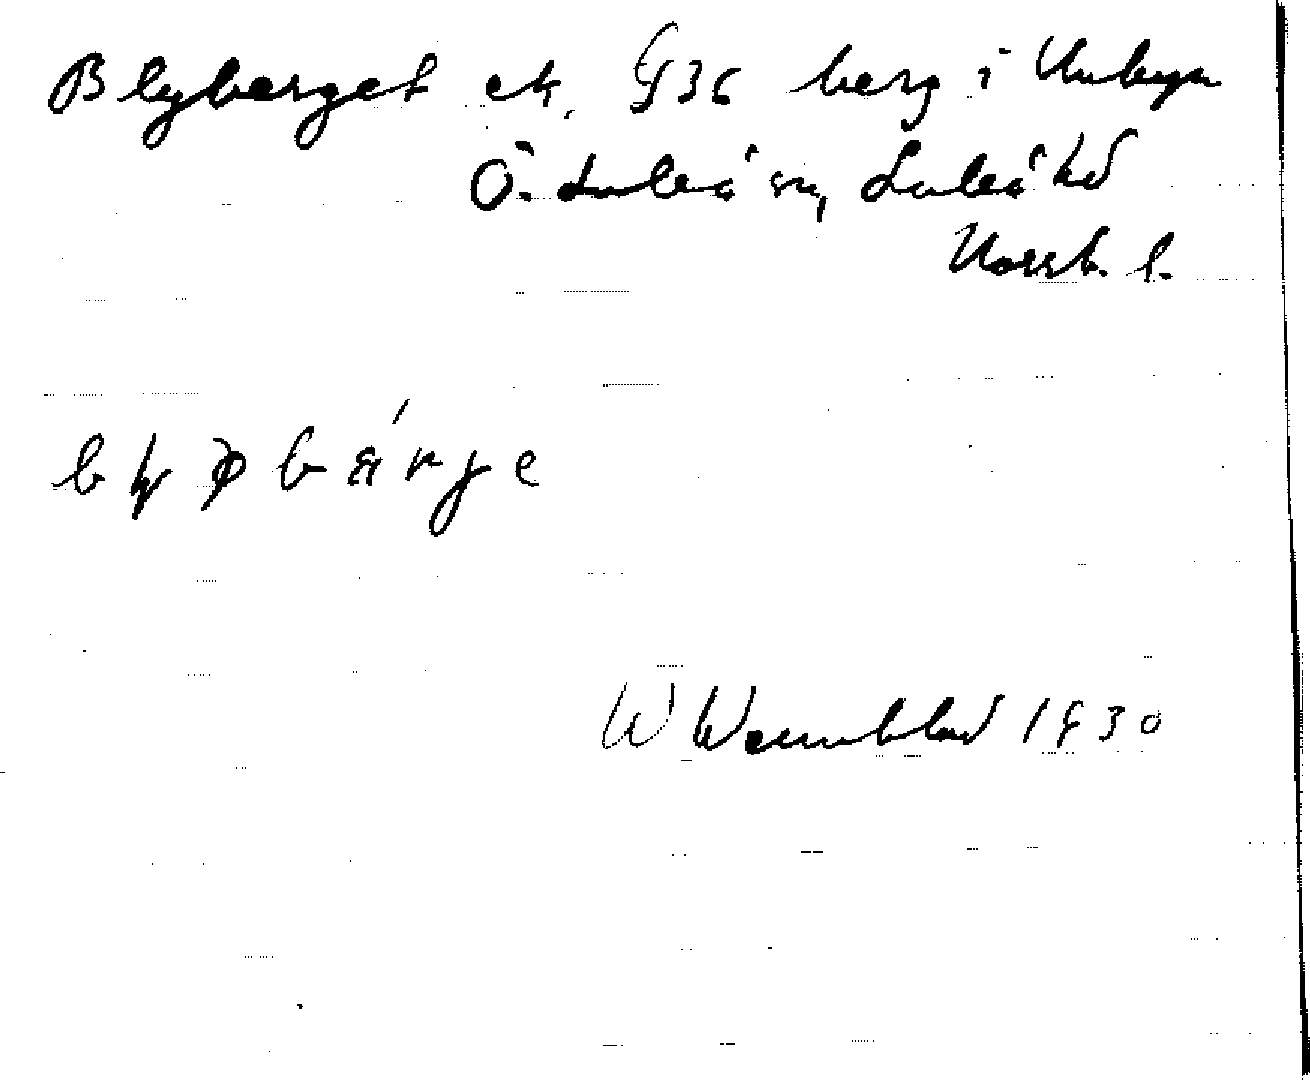 Blyberget ek. G36 berg i Unbyn
Ö. Luleå sn, Luleå td
Norrb. l.
W Wennblad 1930